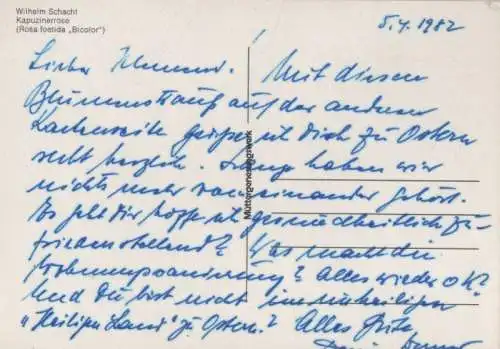 Wilhelm Schacht
Kapuzinerrose
(Rosa foetida „Bicolor")
5.4.1982
Lieber
Mit diesem
Blumenstrauß auf der anderen
Kartenseite grüße ich Dich zu Ostern
recht herzlich. Lange haben wir
nichts mehr voneinander gehört.
Es geht Dir hoffentl. gesundheitlich zu-
friedenstellend? Was macht die
Wohnungssanierung? Alles wieder o.k?
Und Du bist nicht im unheiligen
"Heiligen Land" zu Ostern? Alles Gute
Müttergenesungswerk